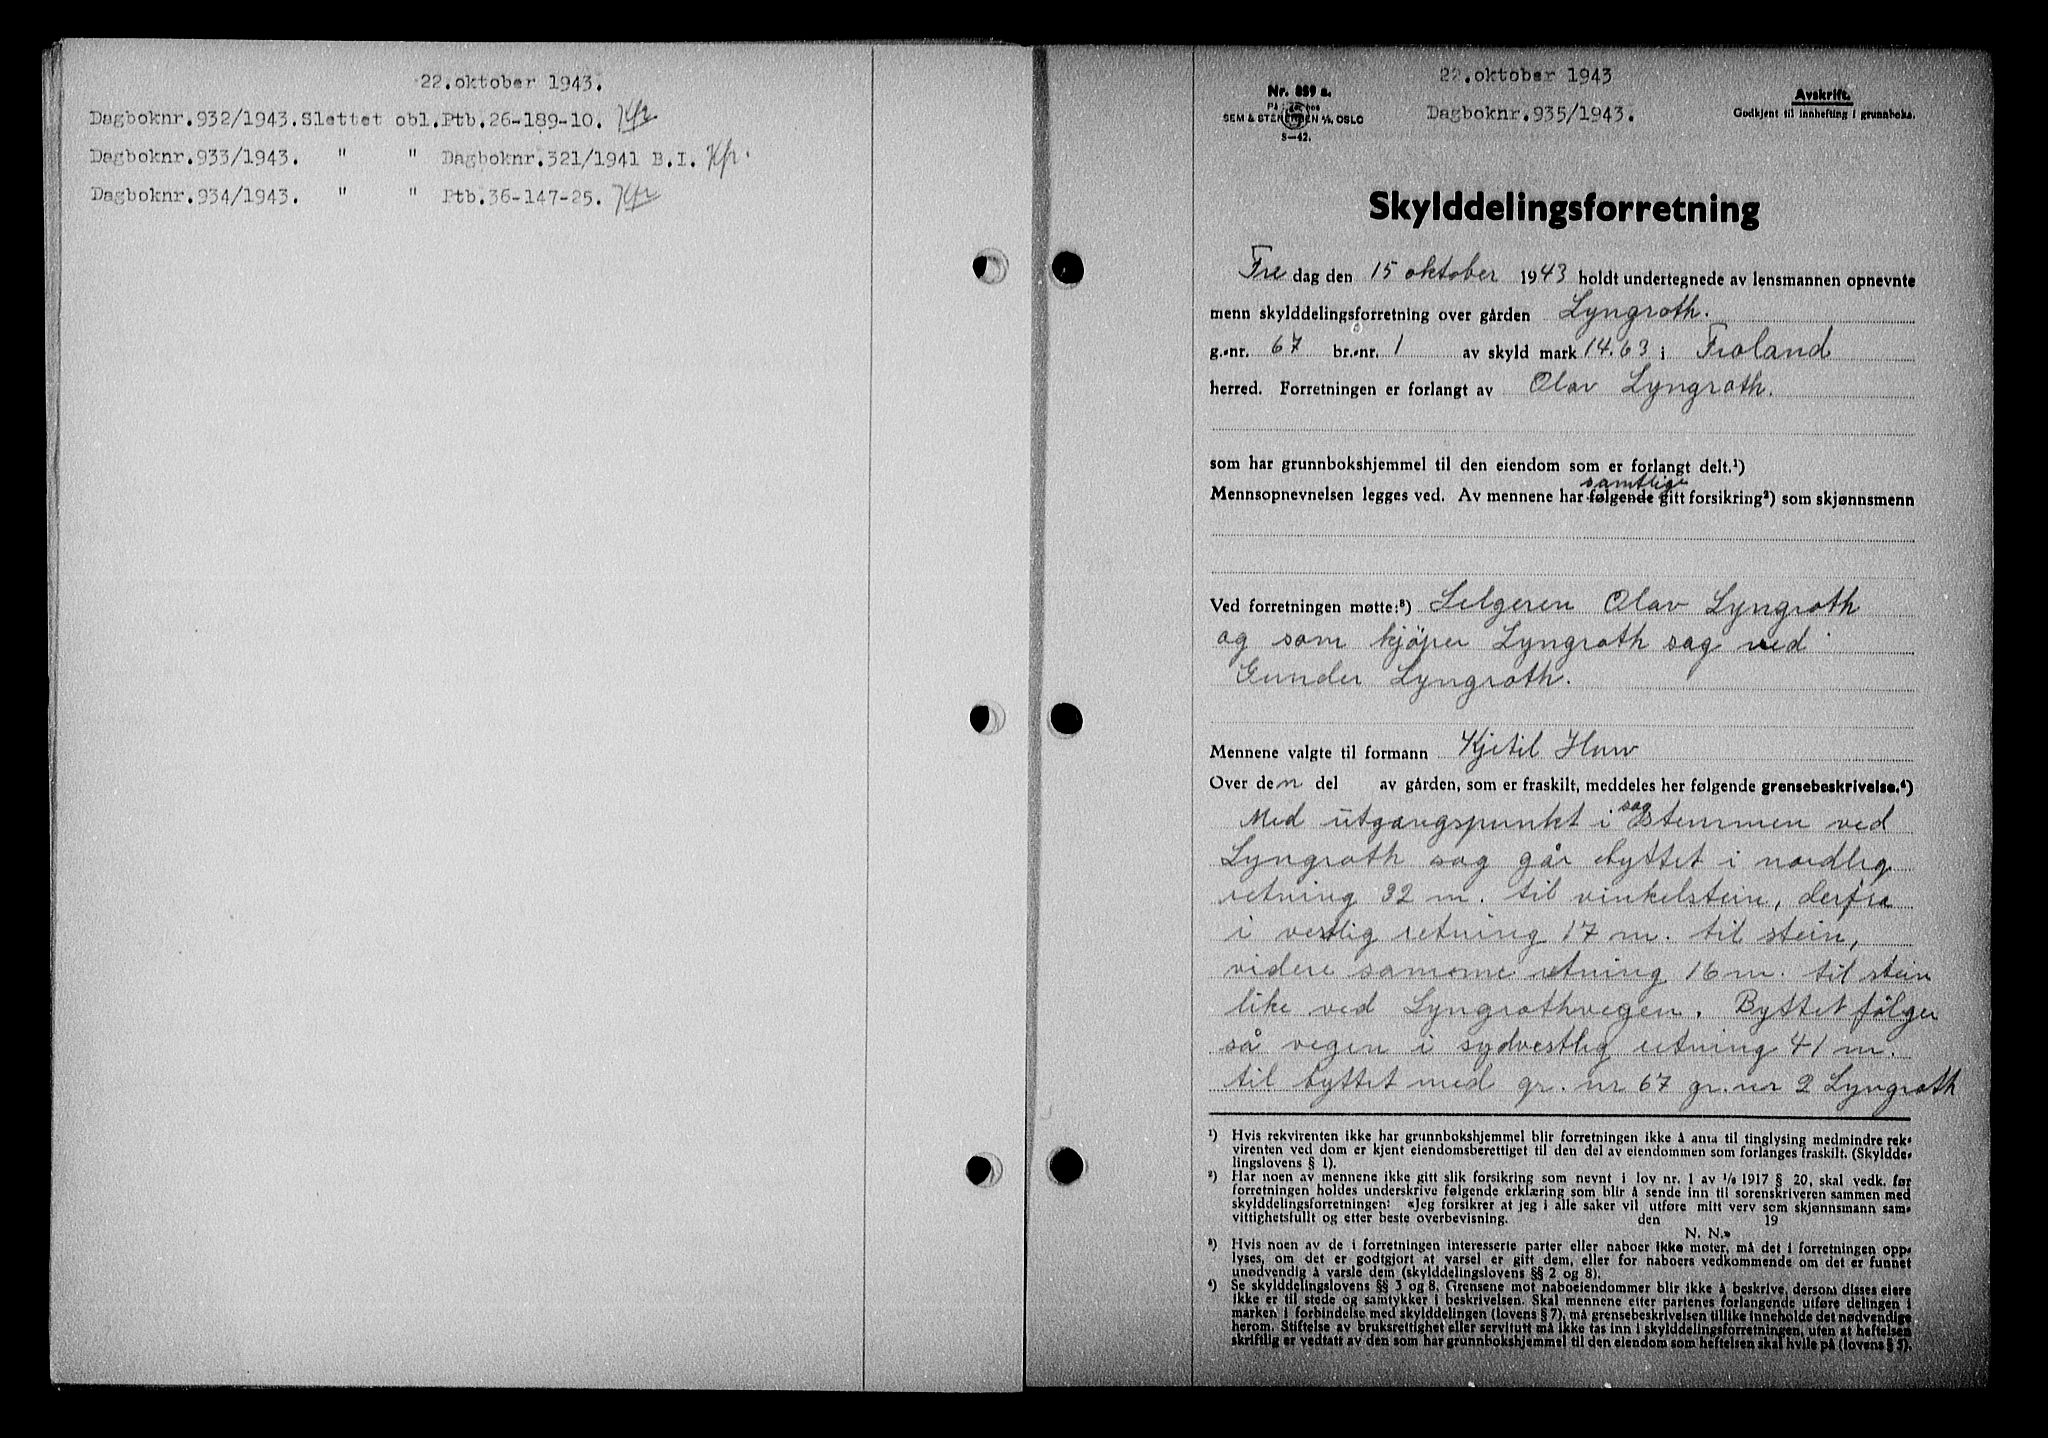 22.oktober 1943.
Dagboknr.932/1943.Slettet obl.Ptb.26-189-10.
Dagboknr.933/1943. " " Dagboknr.321/1941 B.I.
Dagboknr.934/1943. " " Ptb.36-147-25.
22.oktober 1943
Dagboknr.935/1943.
Nr. 889 a.
SEM & STENERSEN A/S, OSLO
5—42.
Avskrift.
Godkjent til innhefting i grunnboka.
Skylddelingsforretning
Fredag den 15 oktober 1943 holdt undertegnede av lensmannen opnevnte
menn skylddelingsforretning over gården Lyngroth.
g.-nr. 67 br.-nr. 1 av skyld mark 14.63 i Froland
herred. Forretningen er forlangt av Olav Lyngroth.
som har grunnbokshjemmel til den eiendom som er forlangt delt.¹)
samtlige
Mennsopnevnelsen legges ved. Av mennene har følgende gitt forsikring²) som skjønnsmenn
Ved forretningen møtte:³) Selgeren Olav Lyngroth
og som kjøper Lyngroth sag ved
Gunder Lyngroth.
Mennene valgte til formann Kjetil
Over den del av gården, som er fraskilt, meddeles her følgende grensebeskrivelse.⁴)
Med utgangspunkt i sagstemmen ved
Lyngroth sag går byttet i nordlig
retning 32 m. til vinkelstein, derfra
i vestlig retning 17 m. til stein,
videre samme retning 16 m. til stein
like ved Lyngrothvegen. Byttet følger
så vegen i sydvestlig retning 41 m.
til byttet med gr. nr 67 gr. nr 2 Lyngroth
¹) Hvis rekvirenten ikke har grunnbokshjemmel blir forretningen ikke å anta til tinglysing medmindre rek-
virenten ved dom er kjent eiendomsberettiget til den del av eiendommen som forlanges fraskilt. (Skyldde-
lingslovens § 1).
²) Har noen av mennene ikke gitt slik forsikring som nevnt i lov nr. 1 av 1/6 1917 § 20, skal vedk. før
forretningen holdes underskrive følgende erklæring som blir å sende inn til sorenskriveren sammen med
skylddelingsforretningen: «Jeg forsikrer at jeg i alle saker vil utføre mitt verv som skjønnsmann sam-
vittighetsfullt og etter beste overbevisning. den 19
N. N.»
³) Hvis noen av de i forretningen interesserte parter eller naboer ikke møter, må det i forretningen opp-
lyses, om det er godtgjort at varsel er gitt dem, eller for naboers vedkommende om det er funnet
unødvendig å varsle dem (skylddelingslovens §§ 2 og 8).
⁴) Se skylddelingslovens §§ 3 og 8. Grensene mot naboeiendommer blir ikke å beskrive, dersom disses eiere
ikke er til stede og samtykker i beskrivelsen. Skal mennene etter partenes forlangende utføre delingen i
marken i forbindelse med skylddelingen (lovens § 7), må grensebeskrivelsen tillike inneholde det nødvendige
herom. Stiftelse av bruksrettighet eller servitutt må ikke tas inn i skylddelingsforretningen, uten at heftelsen
skriftlig er vedtatt av den som har grunnbokshjemmel til den eiendom som heftelsen skal hvile på (lovens § 5).